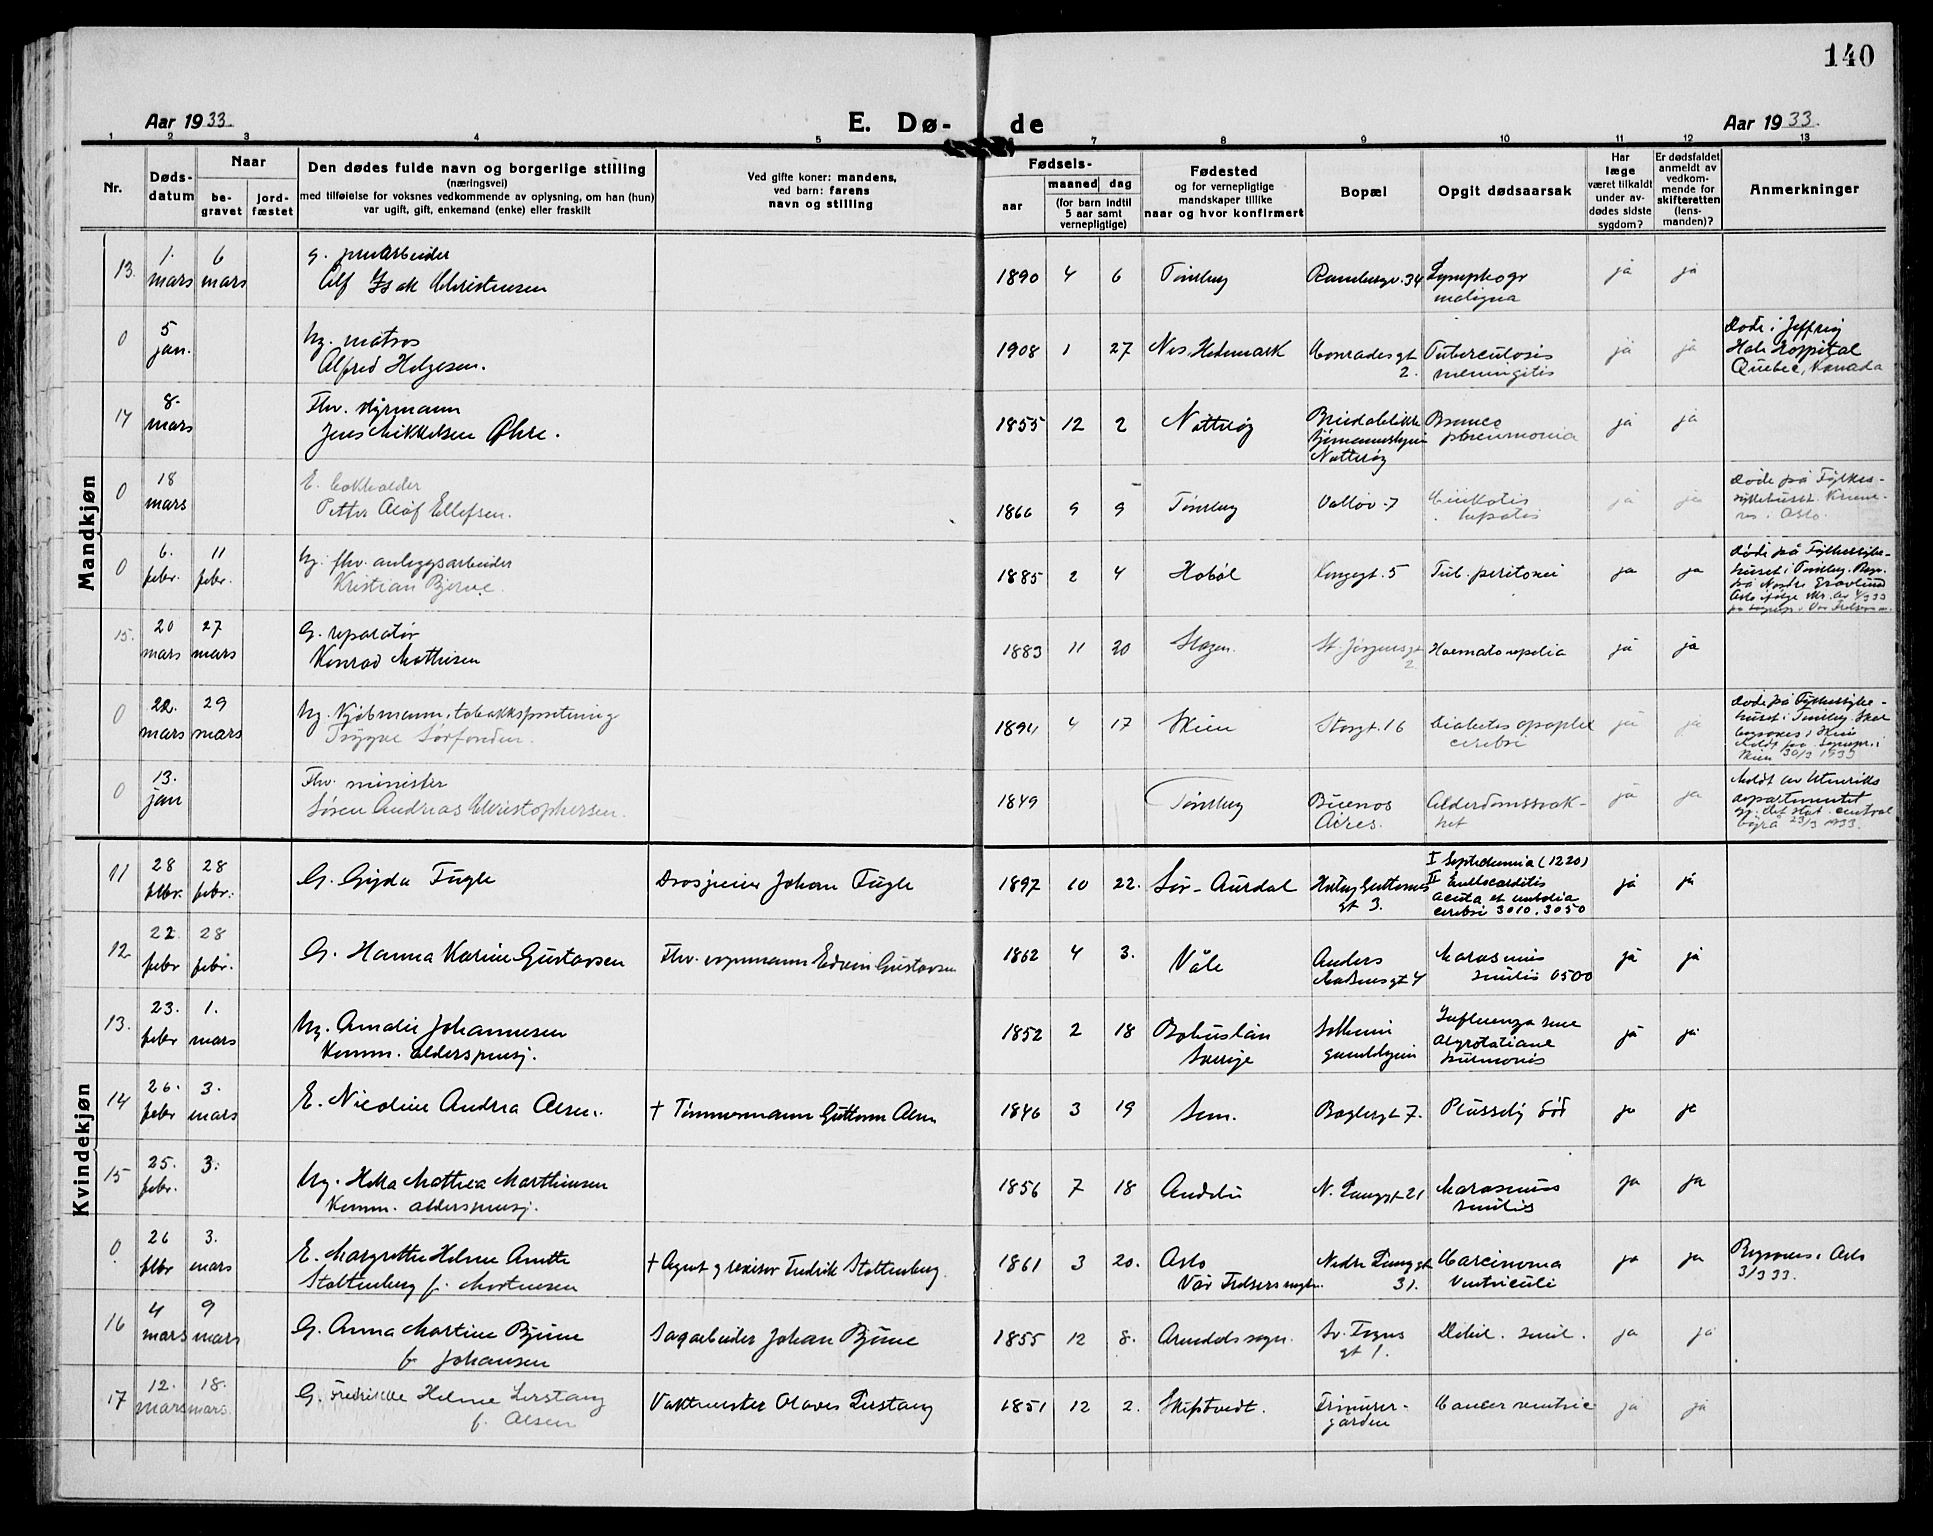 140
Aar 1933.
E. Dø-
de
Aar 1933.
1 2 3 4 5 7 8 9 10 11 12 13
Nr.
Døds-
datum
Naar
be-
gravet
jord-
fæstet
Den dødes fulde navn og borgerlige stilling
(næringsvei)
med tilføielse for voksnes vedkommende av oplysning, om han (hun)
var ugift, gift, enkemand (enke) eller fraskilt
Ved gifte koner: mandens,
ved barn: farens
navn og stilling
Fødsels-
aar
maaned
dag
(for barn indtil
5 aar samt
vernepligtige)
Fødested
og for vernepligtige
mandskaper tillike
naar og hvor konfirmert
Bopæl
Opgit dødsaarsak
Har
læge
været tilkaldt
under av-
dødes sidste
sygdom?
Er dødsfaldet
anmeldt av
vedkom-
mende for
skifteretten
(lens-
manden)?
Anmerkninger
Mandkjøn
13. 1. mars 6 mars
Alf Isak Christensen
1890 4 6 Tønsberg 34 ja ja
0 5 jan. Ug. matros
Alfred Helgesen.
1908 1 27 Nes, Hedemark Conradesgt 2. Tuberculosis
meningitis ja ja
Døde i Jeffrey
Hale Hospital
Quebec, Kanada
14 8. mars Fhv. styrmann
Jens Mikkelsen Øhre.
1855 12 2 Nøtterøy
Nøtterøy
Bronco
pneumonia ja ja
0 18 mars E. bokholder
Petter Olaf Ellefsen.
1866 9 9 Tønsberg Valløv. 7
hepatis ja ja
Døde på Fylkes-
sykehuset.
i Oslo.
0 6. febr. 11 febr. Ug. fhv. anleggsarbeider
Kristian Bjerve
1885 2 4 Hobøl Kongegt. 5 Tub. peritonei ja ja
Døde på Fylkessyke-
huset i Tønsberg. Begr.
på Nordre Gravlund
15. 20 mars 27 mars G. reparatør
Konrad Mathisen
1883 11 20 Slagen. St. Jørgensgt
2. ja ja
0 22. mars 29 mars Ug. Kjøbmann, tobakksforretning
Trygve Sørfonden.
1894 4 17 Skien Storgt. 16 Diabetes apoplex
cerebri ja ja
Døde på Fylkessyke-
huset i Tønsberg. Skal
begraves i Skien
Skien 30/3 1933
0 13. jan Fhv. minister
Søren Andreas Christophersen.
1849 Tønsberg Buenos
Aires. Alderdomssvak-
het ja ja
Meldt av Utenriks
departementet
og det stat. central
byrå 23/3 1933.
Kvindekjøn
11 28 febr. 28 febr. G. Gyda Fugle Drosjeeier Johan Fugle
1897 10 22. Sør-Aurdal
gt 3. I Septichemia (1220)
II Endocarditis
acuta et embolia
cerebri 3010, 3050 ja ja
12 22. febr 28 febr. G. Hanna Karine Gustavsen Fhv. vognmann Edvin Gustavsen
1862 4 3. Våle Anders
Madsensgt 4 Marasmus
senilis 0500 ja ja
13. 23. febr 1. mars Ug. Amalie Johannesen
Komm. alderspensj.
1852 2 18 Bohuslän
Sverige Solheim
gamlehjem Influenza
ja ja
14 26. febr 3. mars E. Nicoline Andrea Olsen. † Tømmermann Guttorm Olsen
1846 3 19 Sem. Baglergt 7. Plusselig død ja ja
15 25. febr. 3. Ug. Helia Mathea Marthinsen
Komm. alderspensj.
1856 7 18 Andebu N. Langgt 21 Marasmus
senilis ja ja
0 26 febr 3. mars E. Margrethe Helene Anette
Stoltenberg f. Mortensen † Agent og revisor Fredrik Stoltenberg.
1861 3 20. Oslo
Vår Frelsers mgh. Nedre Langgt
31. Carcinoma
Ventriculi ja ja
Begraves i Oslo
3/3 33.
16 4 mars 9 mars G. Anna Martine Bjune
f. Johansen Sagarbeider Johan Bjune
1855 12 8. Arendals sogn.
gt 1. Debil. senil. ja ja
17 12. mars 18. mars. G. Fredrikke Helene Lerstang
f. Olsen Vaktmester Olaves Lerstang
1851 12 2. Skiptvedt. Frimurer-
gården Cancer ventric ja ja